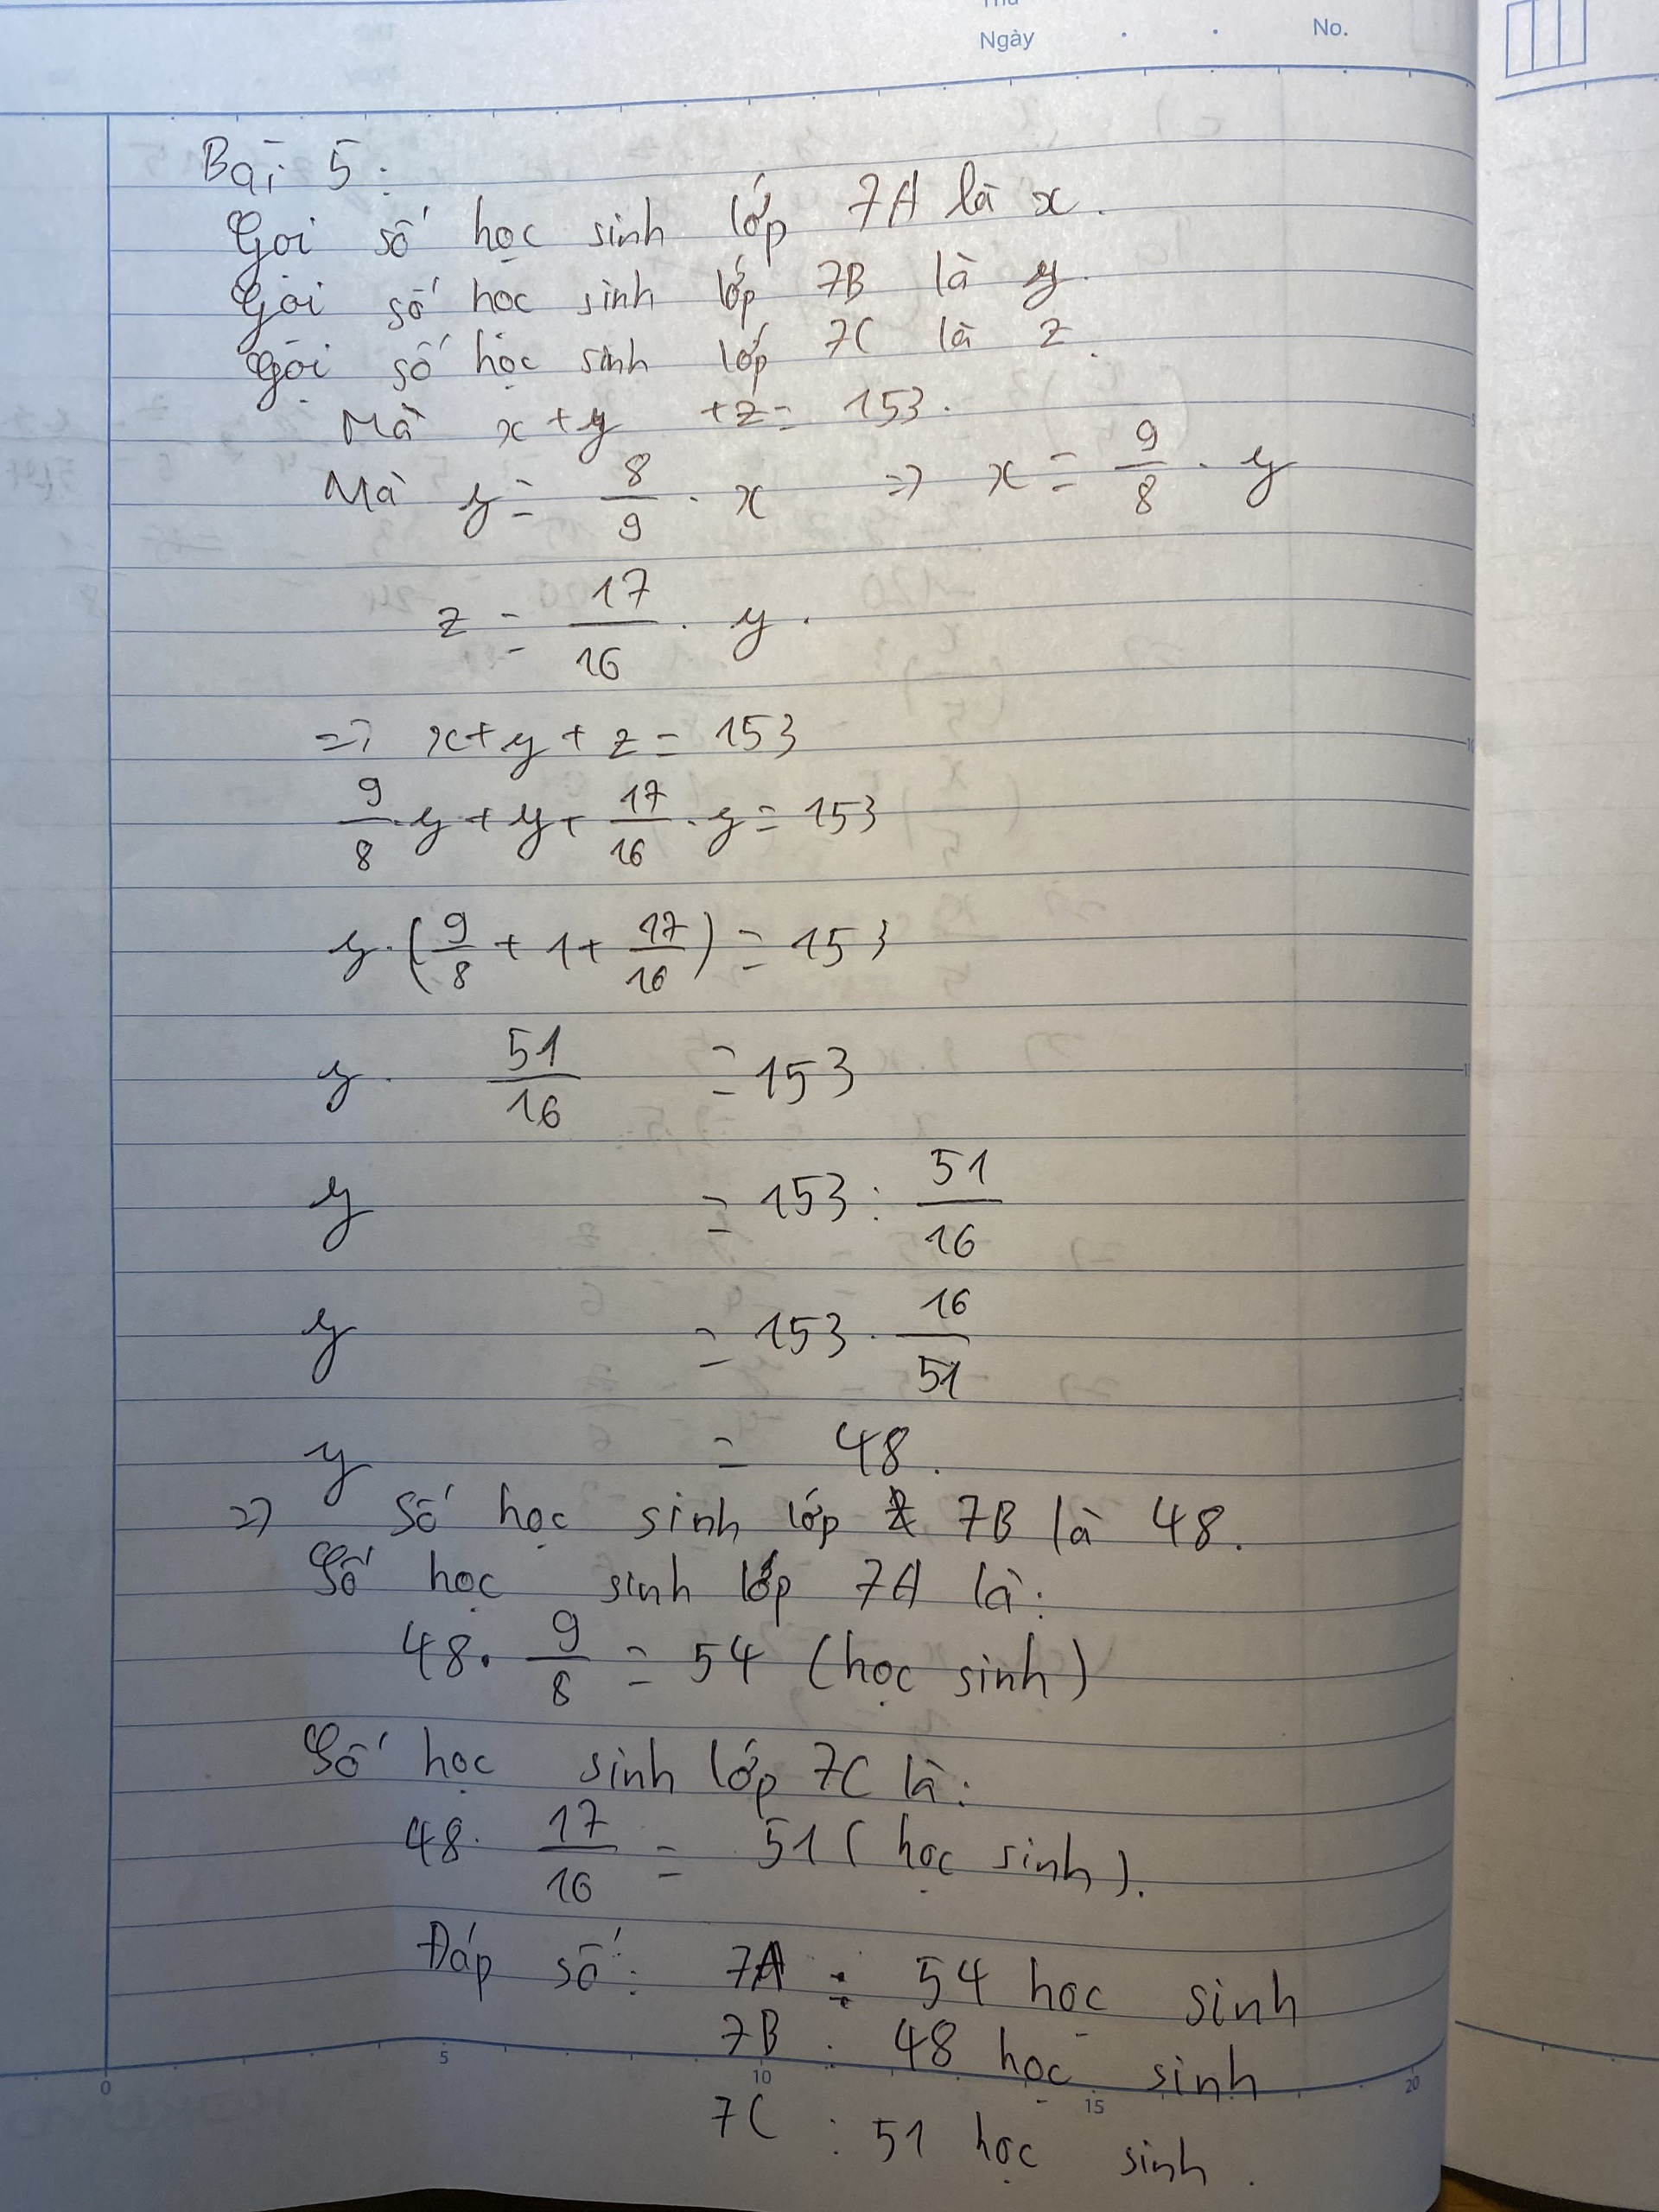 Thứ
Ngày . . No.
Bài 5:
Gọi số học sinh lớp 7A là x.
Gọi số học sinh lớp 7B là y.
Gọi số học sinh lớp 7C là z.
Mà x + y + z = 153.
Mà y = 8/9 . x => x = 9/8 . y
z = 17/16 . y.
=> x + y + z = 153
9/8 . y + y + 17/16 . y = 153
y . (9/8 + 1 + 17/16) = 153
y . 51/16 = 153
y = 153 : 51/16
y = 153 . 16/51
y = 48.
=> Số học sinh lớp 7B là 48.
Số học sinh lớp 7A là:
48 . 9/8 = 54 (học sinh)
Số học sinh lớp 7C là:
48 . 17/16 = 51 (học sinh).
Đáp số: 7A : 54 học sinh
7B : 48 học sinh
0 5 10 15 20
7C : 51 học sinh.